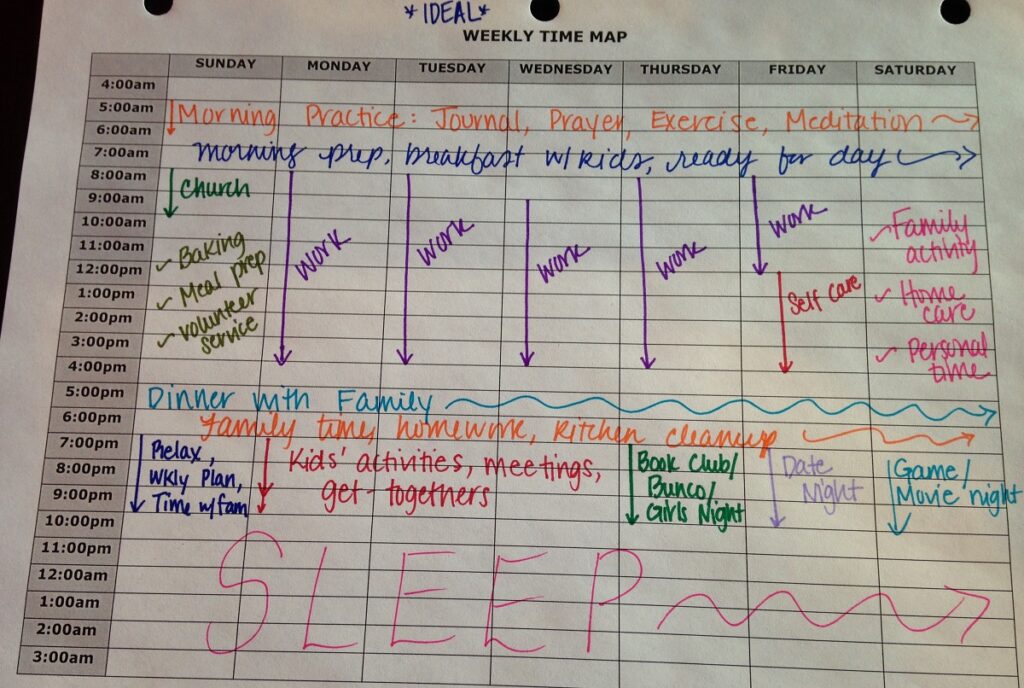 *IDEAL*
WEEKLY TIME MAP
SUNDAY MONDAY TUESDAY WEDNESDAY THURSDAY FRIDAY SATURDAY
4:00am
5:00am
Morning Practice: Journal, Prayer, Exercise, Meditation
6:00am
7:00am
morning prep, breakfast w/kids, ready for day
8:00am
9:00am
10:00am
11:00am
12:00pm
1:00pm
2:00pm
3:00pm
4:00pm
Church
Baking
Meal prep
volunteer
service
Work
Work
Work
Work
Work
Self care
Family
activity
Home
care
Personal
time
5:00pm
Dinner with Family
6:00pm
Family time, homework, kitchen cleanup
7:00pm
8:00pm
9:00pm
10:00pm
Relax,
Wkly Plan,
Time w/fam
Kids' activities, meetings,
get-togethers
Book Club/
Bunco/
Girls Night
Date
Night
Game/
Movie night
11:00pm
12:00am
1:00am
2:00am
3:00am
SLEEP